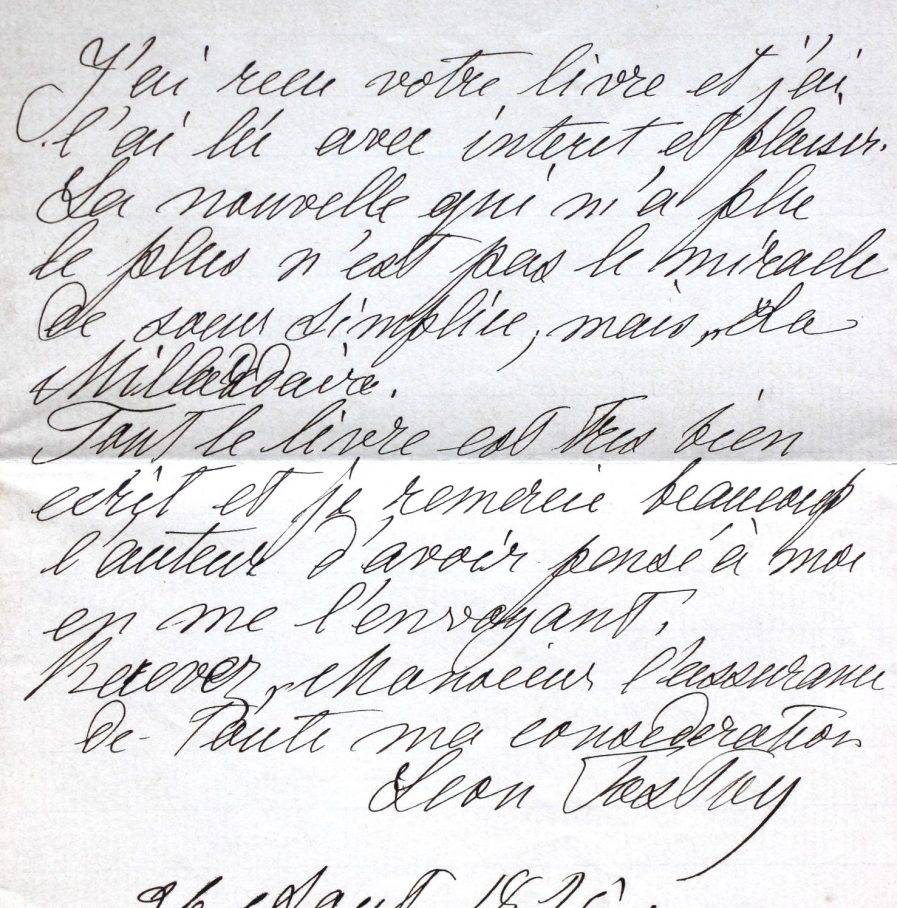 J'ai recu votre livre et j'ai
l'ai lu avec interet et plaisir.
La nouvelle qui m'a plu
le plus n'est pas le miracle
de soeur Simplice, mais „La
Tout le livre est tres bien
ecrit et je remercie beaucoup
l'auteur d'avoir pensé à moi
en me l'envoyant.
Recevez, Monsieur l'assurance
de toute ma consideration
Leon Tolstoy
26 Aout